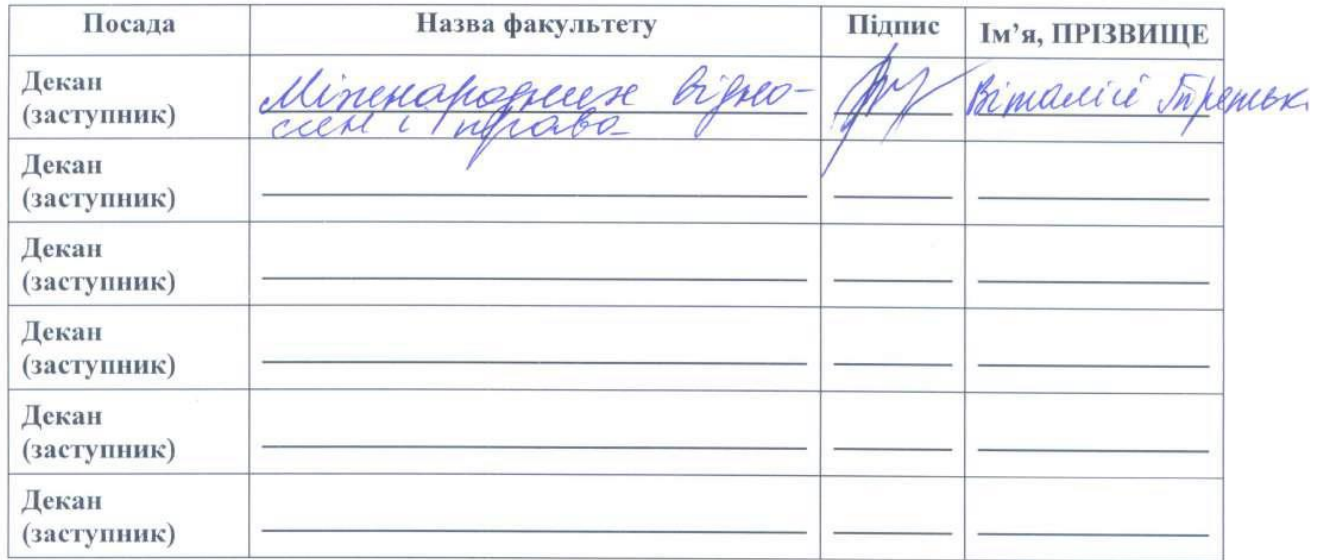 Посада Назва факультету Підпис Ім’я, ПРІЗВИЩЕ
Декан
(заступник)
Міжнародних відно-
син і права
Віталій Третьк
Декан
(заступник)
Декан
(заступник)
Декан
(заступник)
Декан
(заступник)
Декан
(заступник)